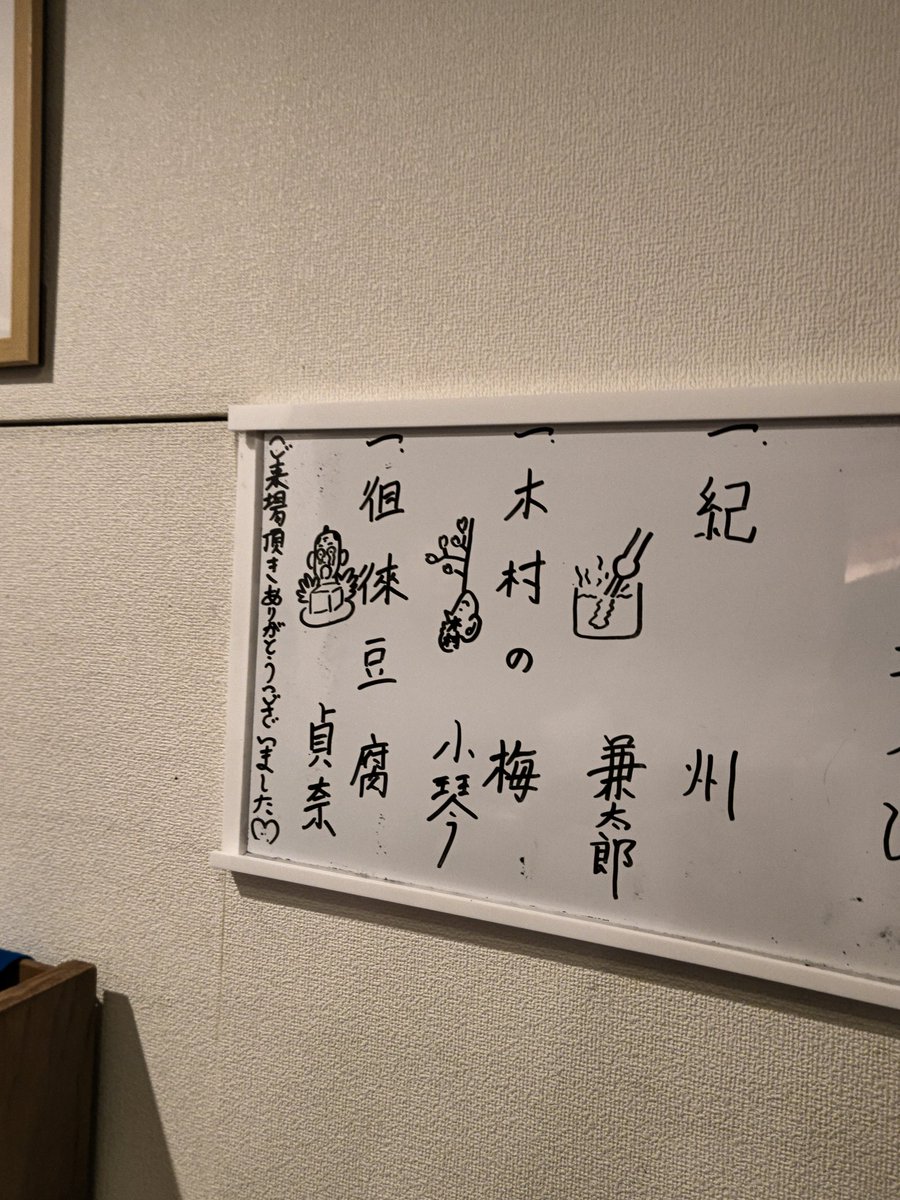 一、紀州
兼太郎
一、木村の梅
小琴
一、徂徠豆腐
貞奈
ご来場頂きありがとうございました♡